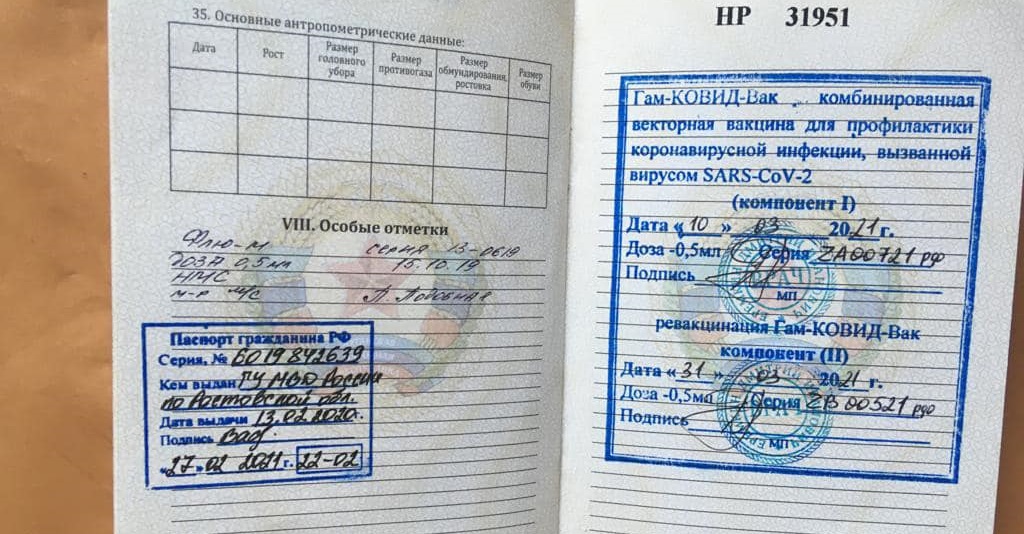 35. Основные антропометрические данные:
Дата Рост Размер головного убора Размер противогаза Размер обмундирования, ростовка Размер обуви
VIII. Особые отметки
Флю-М серия 13-0619
ДОЗА 0,5 мл 15.10.19
НМС
м-р м/с
Паспорт гражданина РФ
Серия, № 6019 842639
Кем выдан ГУ МВД России
по Ростовской обл.
Дата выдачи 13.02.2020г.
Подпись
«27» 02 2021 г. 22-02
НР 31951
Гам-КОВИД-Вак комбинированная
векторная вакцина для профилактики
коронавирусной инфекции, вызванной
вирусом SARS-CoV-2
(компонент I)
Дата «10» 03 2021 г.
Доза -0,5мл Серия ZA00721 РФ
Подпись
МП
ревакцинация Гам-КОВИД-Вак
компонент (II)
Дата «31» 03 2021 г.
Доза -0,5мл Серия ZB00521 РФ
Подпись
МП